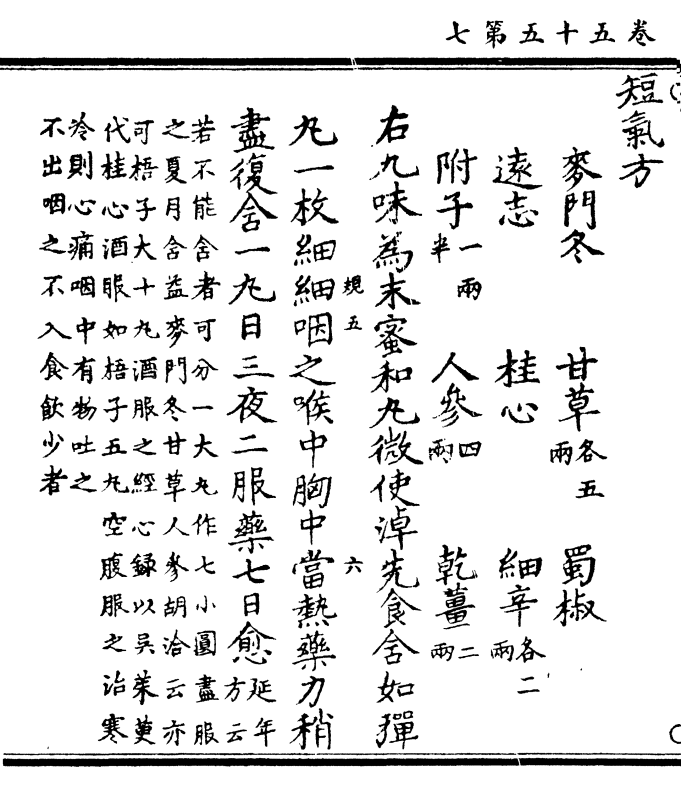 卷五十五第七
短氣方
麥門冬 甘草各五兩 蜀椒
遠志 桂心 細辛各二兩
附子一兩半 人參四兩 乾薑二兩
右九味為末蜜和丸微使淖先食含如彈
規五 六
丸一枚細細咽之喉中胸中當熱藥力稍
盡復含一丸日三夜二服藥七日愈延年方云
若不能含者可分一大丸作七小圓盡服
之夏月含益麥門冬甘草人參胡洽云亦
可梧子大十丸酒服之經心錄以吳茱萸
代桂心酒服如梧子五丸空腹服之治寒
冷則心痛咽中有物吐之
不出咽之不入食飲少者